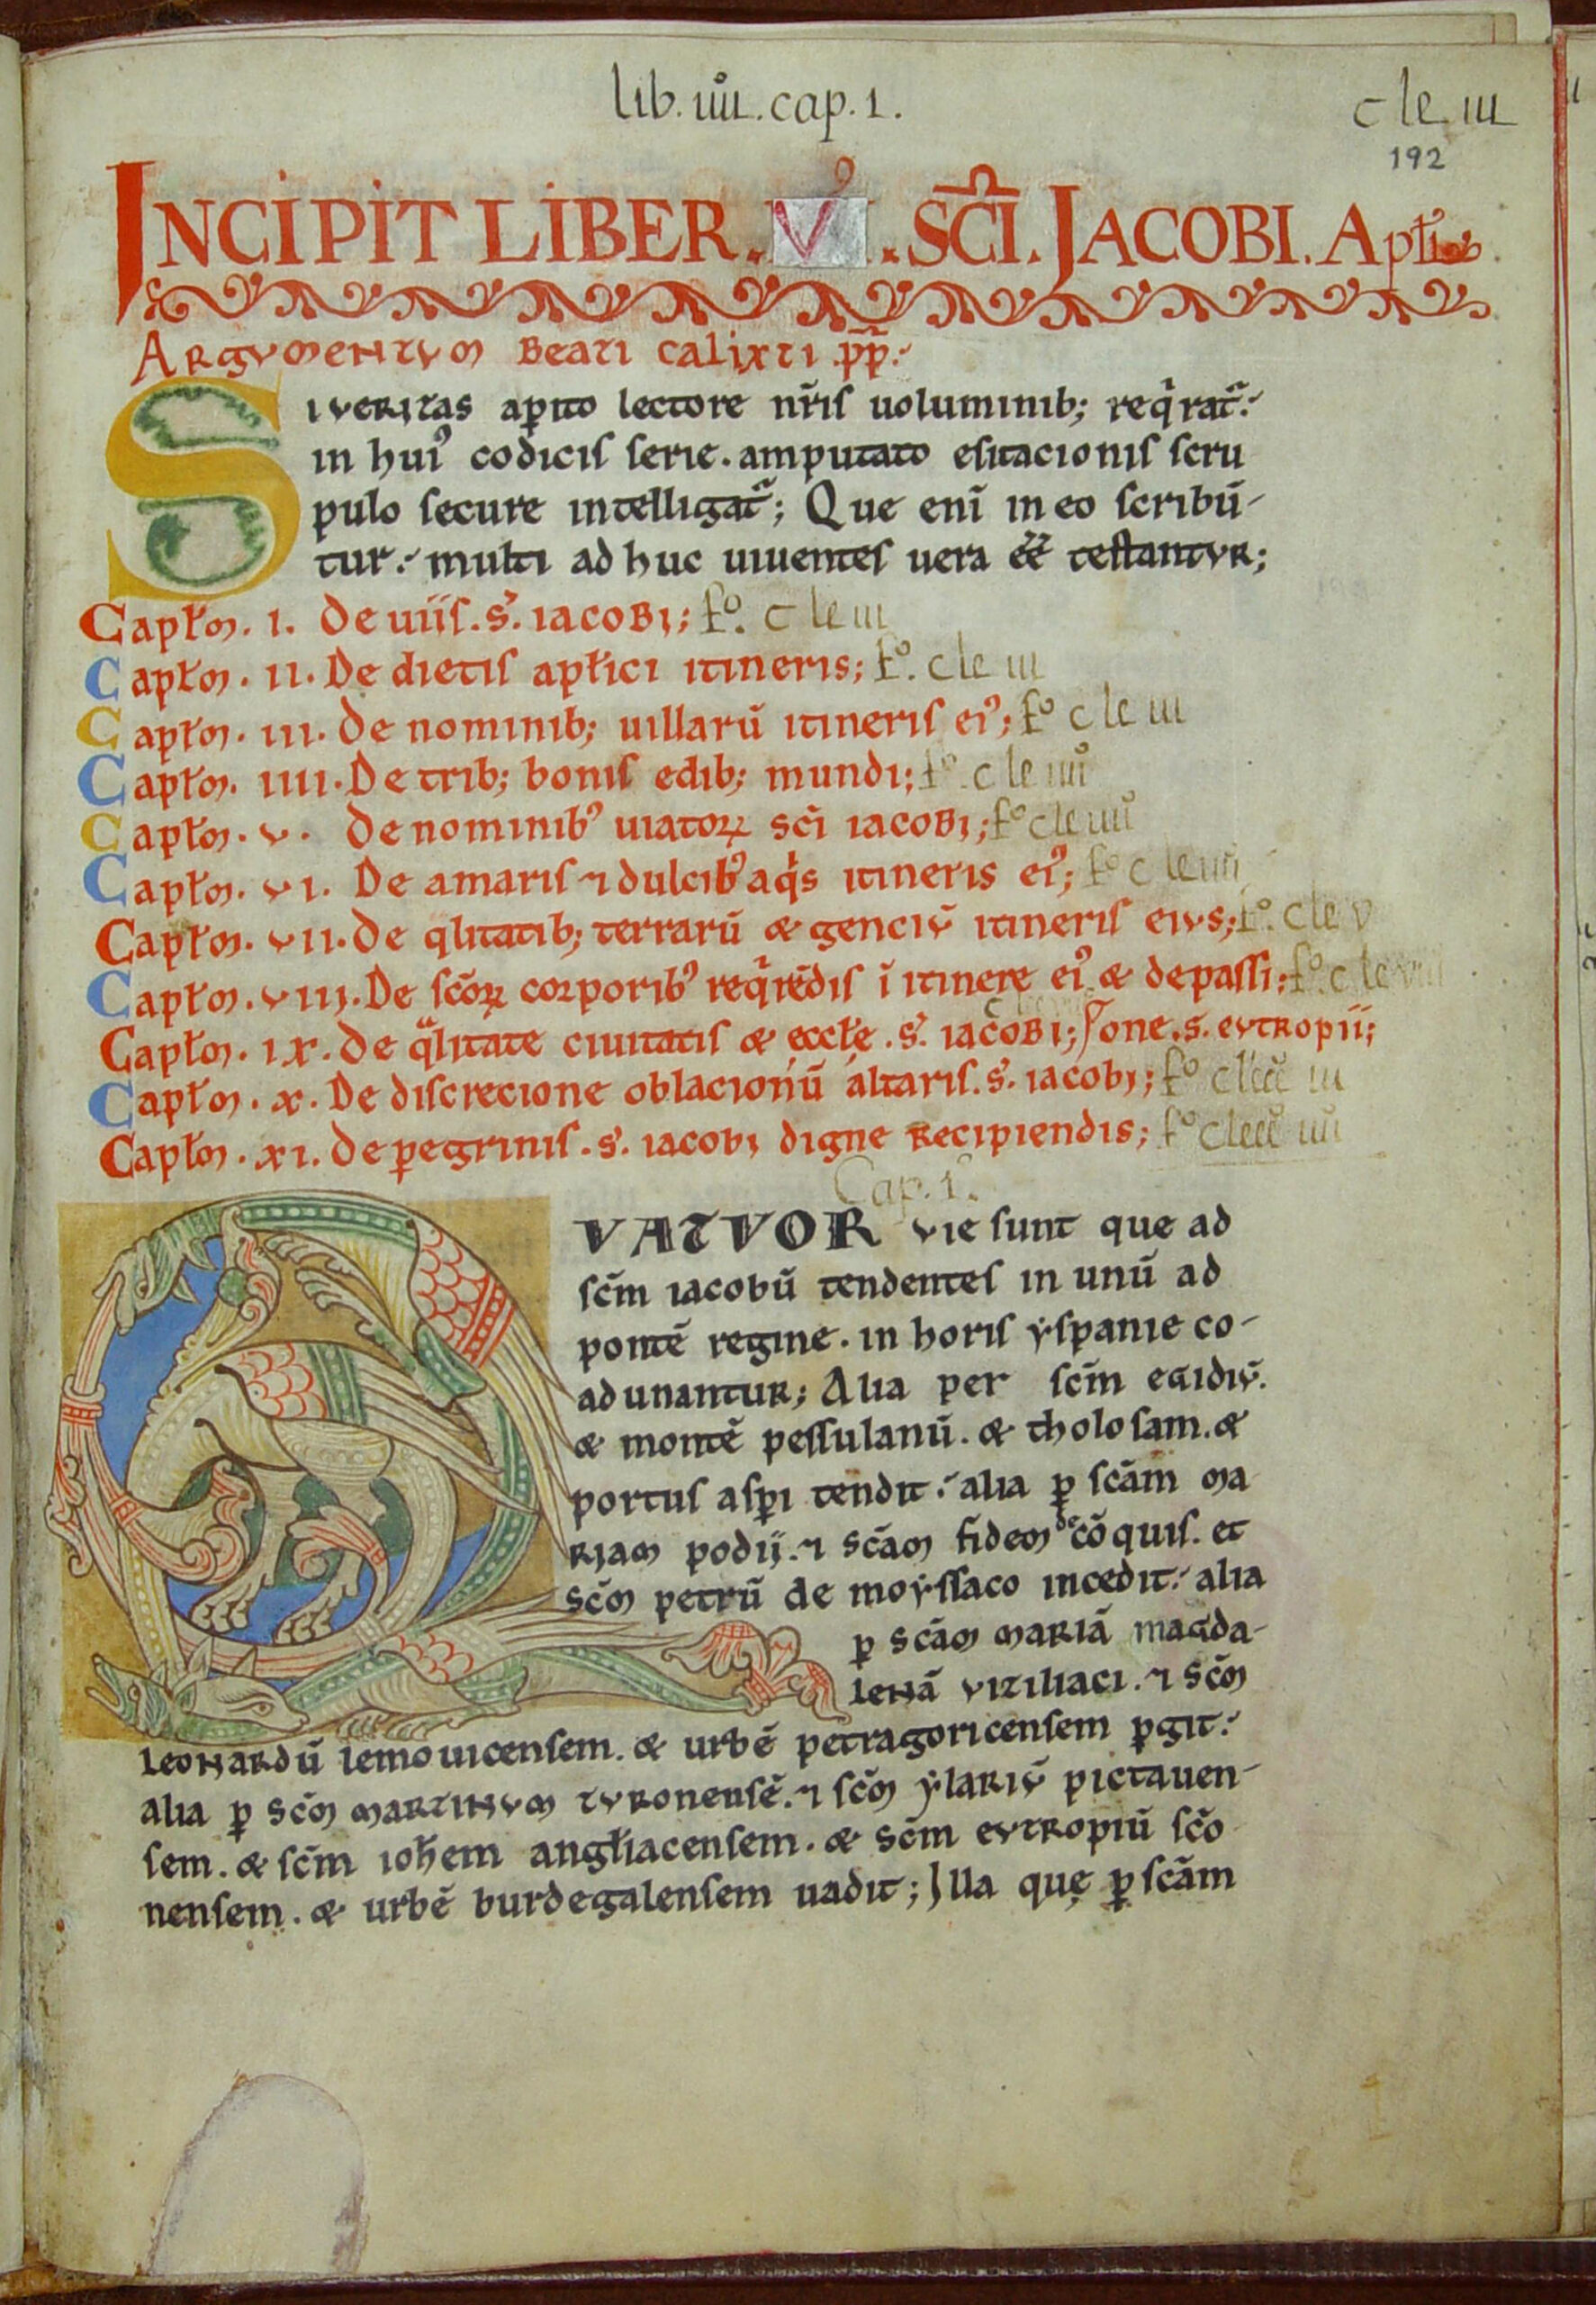 lib. iiiiº. cap. 1.
cle iii
192
INCIPIT LIBER . V . SC̅I. JACOBI. Apłi
Argumentum Beati Calixti .pp̅.
SI veritas a ꝑito lectore nr̅is uoluminib; reqͥrat᷑.
in huiꝰ codicis serie. amputato esitacionis scru
pulo secure intelligat᷑; Que eni̅ in eo scribu̅-
tur. multi ad huc uiuentes uera ee̅ testantur;
Capłm. I. De uiis. s̕. iacobi; fº. cle iii
Capłm. II. De dietis apłici itineris; fº. cle iii
Capłm. III. De nominib; uillaru̅ itineris eiꝰ; fº cle iii
Capłm. IIII. De trib; bonis edib; mundi; fº. cle iiiiº
Capłm. V. De nominibꝰ uiatoꝝ sc̅i iacobi; fº cle iiiiº
Capłm. VI. De amaris ⁊ dulcibꝰ aqͥs itineris eiꝰ; fº cle iiii
Capłm. VII. De qlitatib; terraru̅ & genciu̅ itineris eius; fº. cle v
Capłm. VIII. De sc̅oꝝ corporibꝰ reqͥre̅dis i̅ itinere eiꝰ & de passi; fº. cle
Capłm. IX. De qͣlitate ciuitatis & eccłe. s̕. iacobi; one. s. eutropii;
Capłm. X. De discrecione oblacionu̅ altaris. s̕. iacobi; fº
Capłm. XI. De ꝑegrinis. s̕. iacobi digne recipiendis; fº
Cap. 1º.
QVATVOR vie sunt que ad
sc̅m iacobu̅ tendentes in unu̅ ad
ponte̅ regine. in horis yspanie co-
adunantur; Alia per sc̅m egidiu̅.
& monte̅ pessulanu̅. & tholosam. &
portus asꝑi tendit. alia ꝑ sc̅am ma
riam podii. ⁊ sc̅am fidem de co̅quis. et
sc̅m petru̅ de moyssaco incedit. alia
ꝑ sc̅am maria̅ magda-
lena̅ viziliaci. ⁊ sc̅m
leonardu̅ lemouicensem. & urbe̅ petragoricensem ꝑgit.
alia ꝑ sc̅m martinum turonense̅. ⁊ sc̅m ylariu̅ pictauen-
sem. & sc̅m ioh̅em angłiacensem. & sc̅m eutropiu̅ sc̅o
nensem. & urbe̅ burdegalensem uadit; Illa quę ꝑ sc̅am